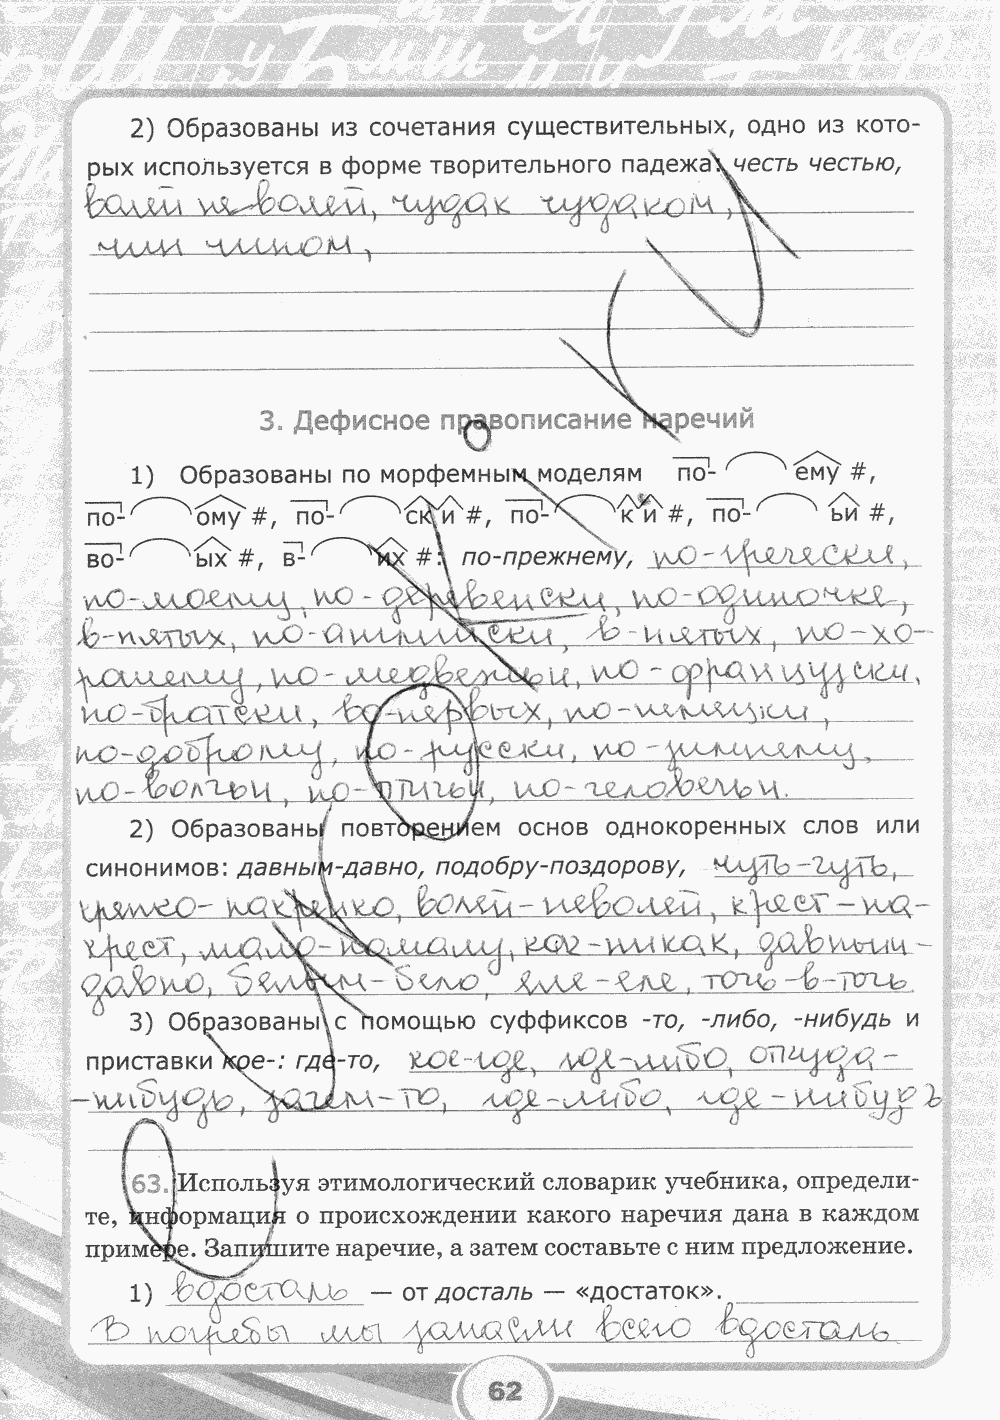 2) Образованы из сочетания существительных, одно из кото-
рых используется в форме творительного падежа: честь честью,
волей неволей, чудак чудаком,
чин чином,
3. Дефисное правописание наречий
1) Образованы по морфемным моделям по- ему #,
по- ому #, по- ск и #, по- к и #, по- ьи #,
во- ых #, в- их #: по-прежнему, по-гречески,
по-моему, по-деревенски, по-одиночке,
в-пятых, по-английски, в-пятых, по-хо-
рошему, по-медвежьи, по-французски,
по-братски, во-первых, по-немецки,
по-доброму, по-русски, по-зимнему,
по-волчьи, по-птичьи, по-человечьи.
2) Образованы повторением основ однокоренных слов или
синонимов: давным-давно, подобру-поздорову, чуть-чуть,
крепко-накрепко, волей-неволей, крест-на-
крест, мало-помалу, как-никак, давным-
давно, белым-бело, еле-еле, точь-в-точь
3) Образованы с помощью суффиксов -то, -либо, -нибудь и
приставки кое-: где-то, кое-где, где-либо, откуда-
-нибудь, зачем-то, где-либо, где-нибудь
63. Используя этимологический словарик учебника, определи-
те, информация о происхождении какого наречия дана в каждом
примере. Запишите наречие, а затем составьте с ним предложение.
1) вдосталь — от досталь — «достаток».
В погребы мы запасли всего вдосталь
62